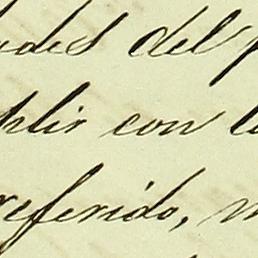 ades del p
plir con l
referido, n